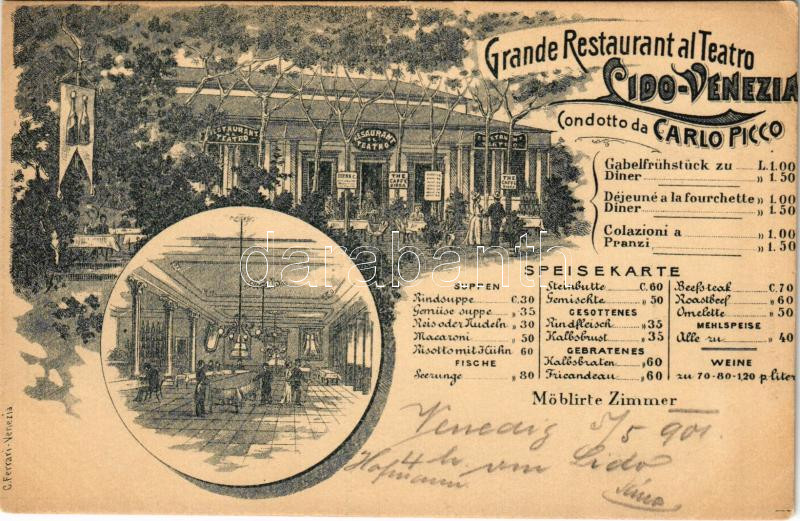 Grande Restaurant al Teatro
LIDO-VENEZIA
Condotto da CARLO PICCO
Gabelfrühstück zu L.1.00
Diner „ 1.50
Déjeuné a la fourchette „ 1.00
Diner „ 1.50
Colazioni a „ 1.00
Pranzi „ 1.50
RESTAURANT
TEATRO
RESTAURANT
AL
TEATRO
RESTAURANT
TEATRO
THE
CAFFÈ
BIRRA
THE
CAFFÈ
SPEISEKARTE
SUPPEN
Rindsuppe C.30
Gemüse suppe „ 35
Reis oder Nudeln „ 30
Macaroni „ 50
Risotto mit Hühn 60
FISCHE
Seezunge „ 80
Steinbutte C.60
Gemischte „ 50
GESOTTENES
Rindfleisch „ 35
Kalbsbrust „ 35
GEBRATENES
Kalbsbraten „ 60
Fricandeau „ 60
Beefsteak C.70
Roastbeef „ 60
Omelette „ 50
MEHLSPEISE
Alle zu „ 40
WEINE
zu 70-80-1,20 p. liter
Möblirte Zimmer
Venedig 5/5 901.
4 h am Lido
Hofmann
C. Ferrari-Venezia
darabanth.com